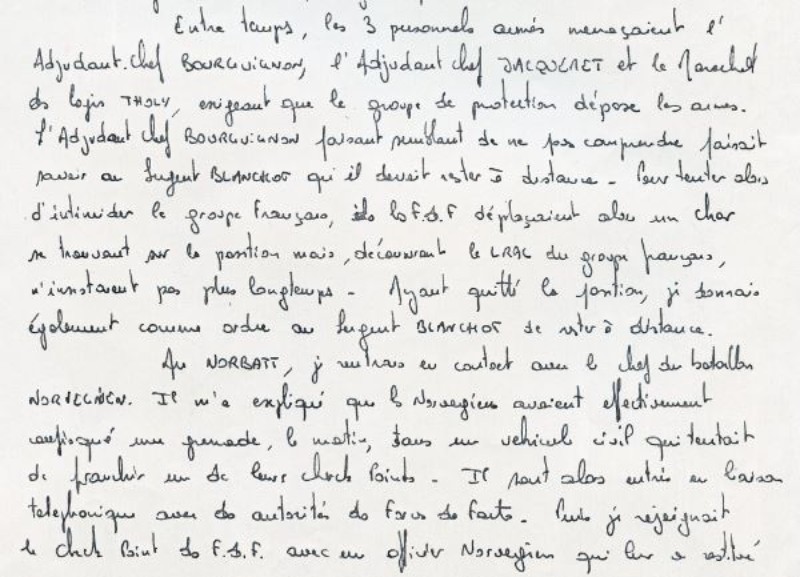 Entre temps, les 3 personnels armés menaçaient l'
Adjudant.Chef BOURGUIGNON, l'Adjudant chef JACQUEMET et le Marechal
des logis THOLY, exigeant que le groupe de protection dépose les armes.
L'Adjudant Chef BOURGUIGNON faisant semblant de ne pas comprendre faisait
savoir au Sergent BLANCHOT qu'il devait rester à distance - Pour tenter alors
d'intimider le groupe Français, les F.d.F déplaçaient alors un char
se trouvant sur la position mais, découvrant le LRAC du groupe français,
n'insistaient pas plus longtemps - Ayant quitté la position, je donnais
également comme ordre au Sergent BLANCHOT de rester à distance.
Au NORBATT, je rentrais en contact avec le chef du bataillon
NORVEGIEN. Il m'a expliqué que les Norvegiens avaient effectivement
confisqué une grenade, le matin, dans un vehicule civil qui tentait
de franchir un de leurs check Points - Ils sont alors entrés en liaison
telephonique avec des autorités des Forces de Facto - Puis je rejoignais
le check Point des F.d.F. avec un officier Norvegien qui leur a restitué